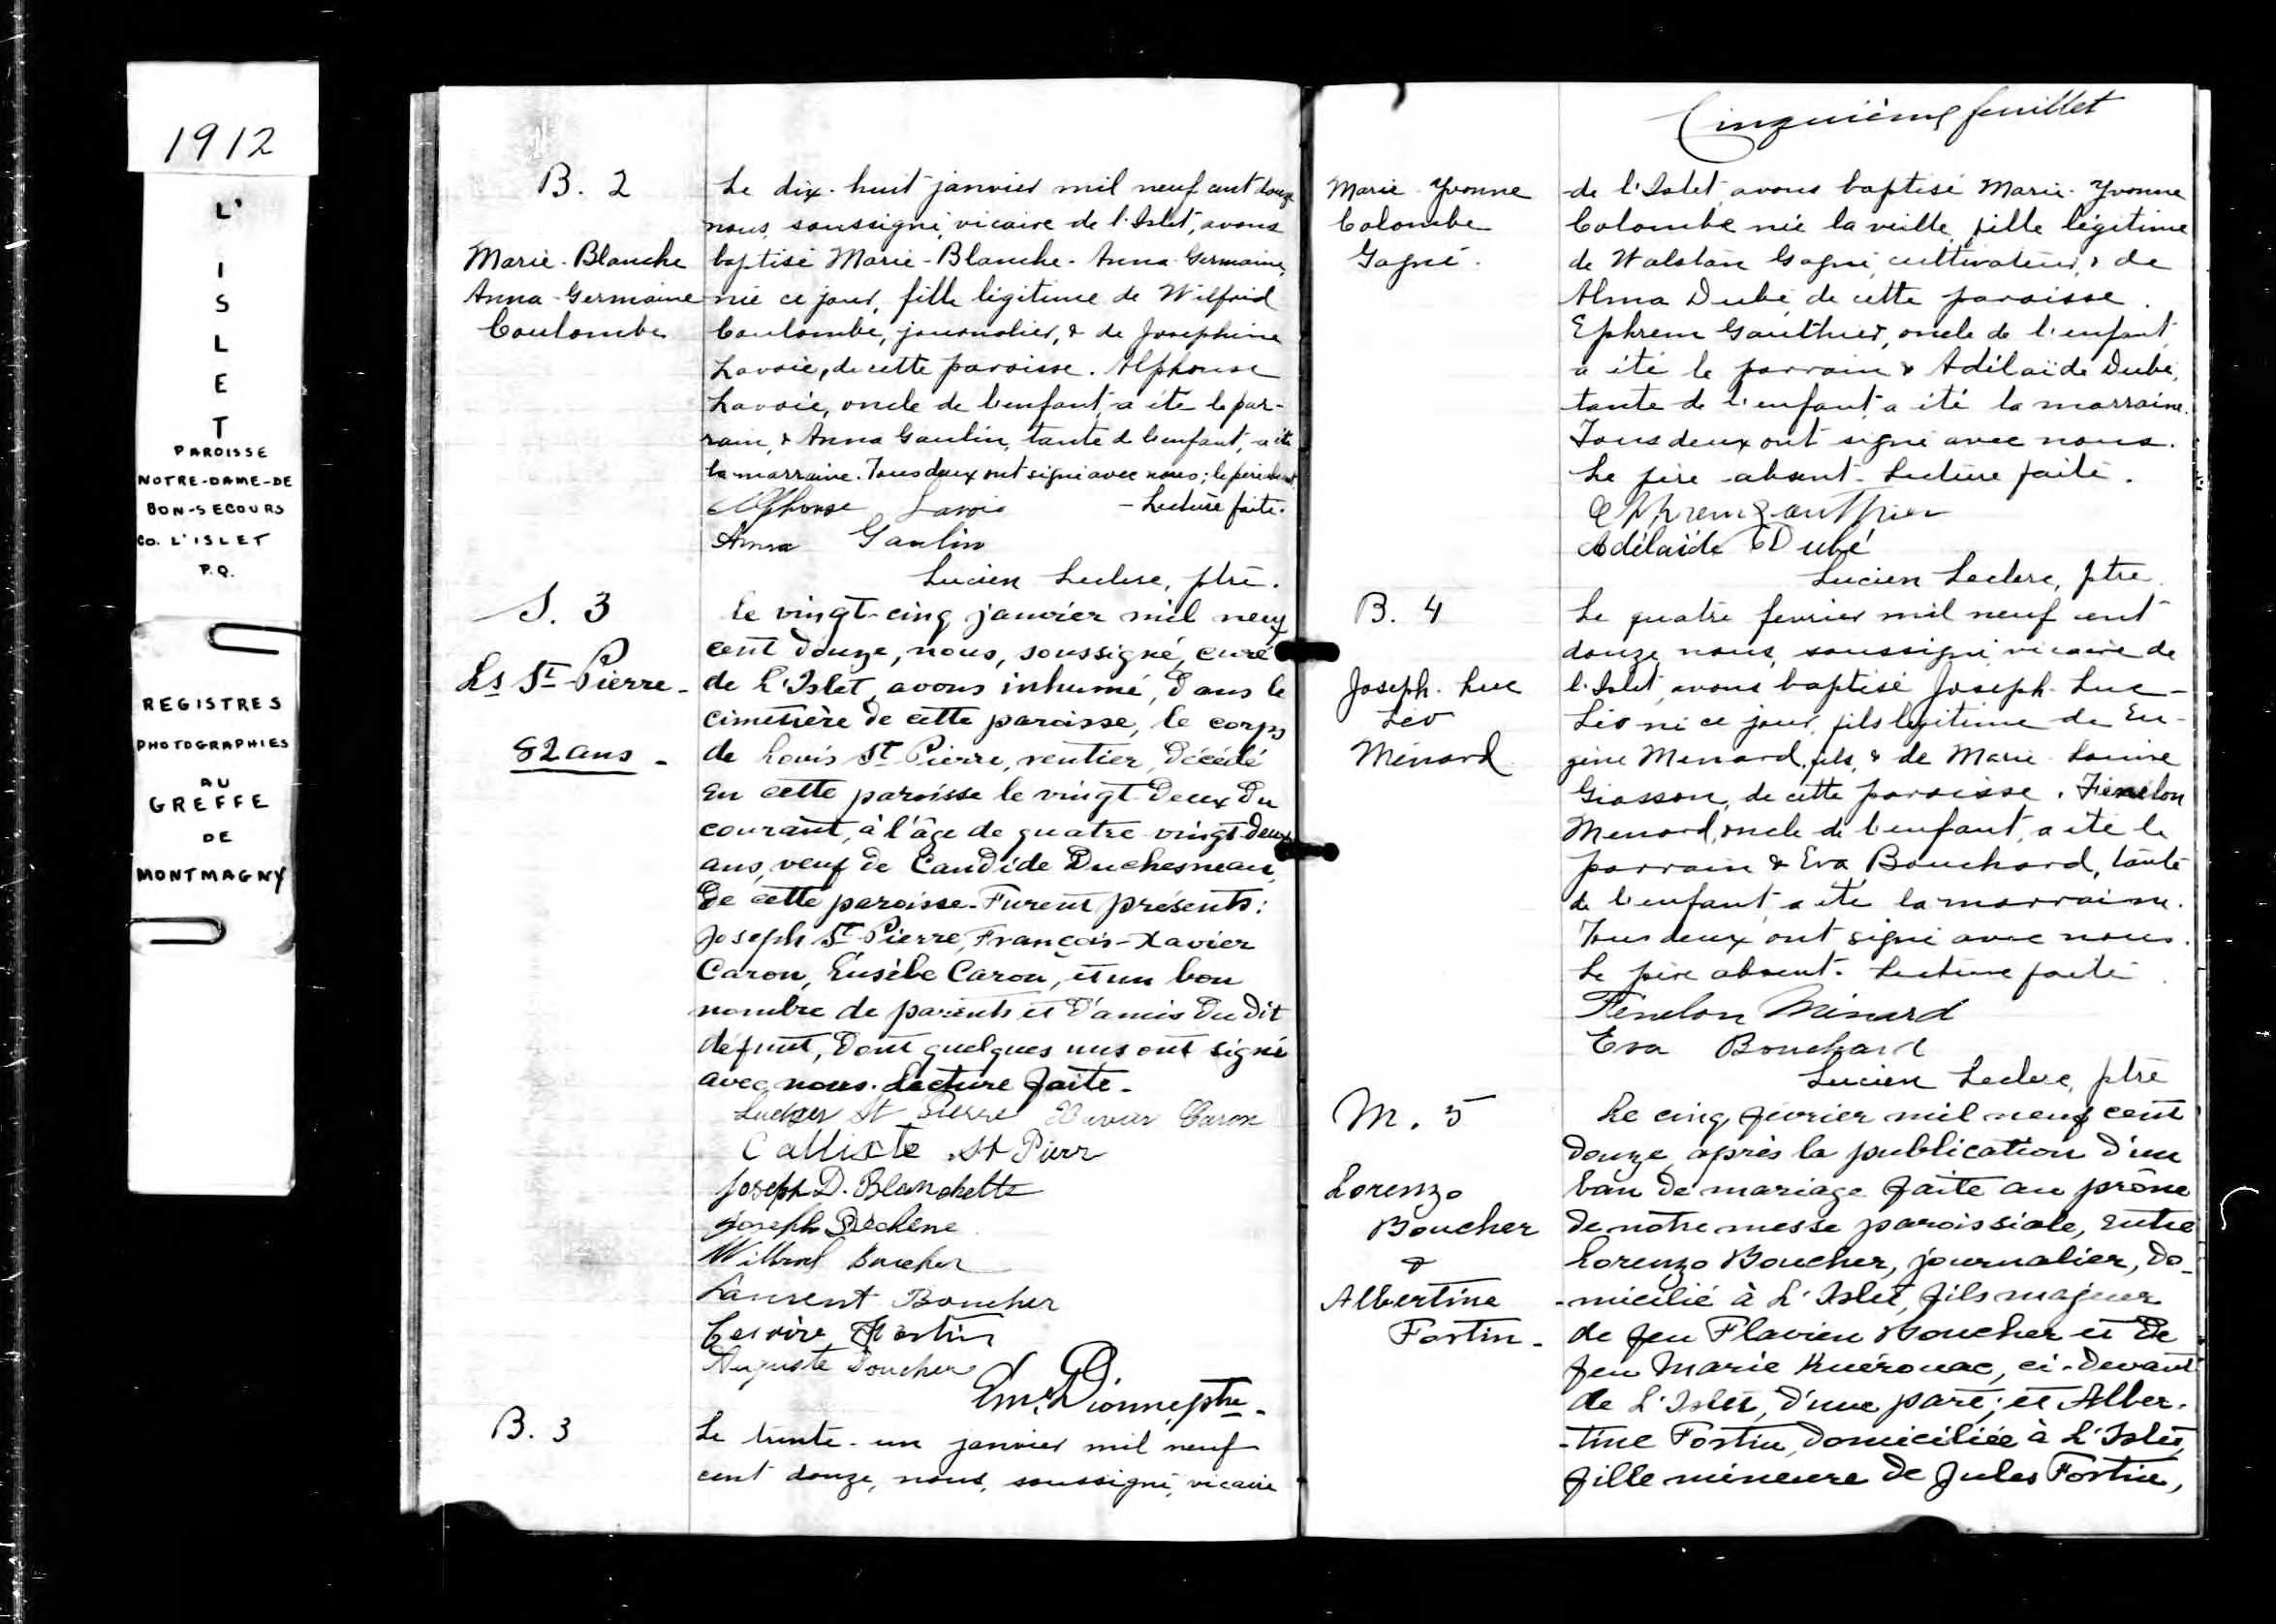 1912
L'
I
S
L
E
T
PAROISSE
NOTRE-DAME-DE
BON-SECOURS
CO. L'ISLET
P.Q.
REGISTRES
PHOTOGRAPHIES
AU
GREFFE
DE
MONTMAGNY
B. 2
Marie-Blanche
Anna-Germaine
Coulombe
Le dix-huit janvier mil neuf cent douze
nous, soussigné, vicaire de l'Islet, avons
baptisé Marie-Blanche-Anna-Germaine,
née ce jour, fille légitime de Wilfrid
Coulombe, journalier, & de Josephine
Lavoie, de cette paroisse. Alphonse
Lavoie, oncle de l'enfant, a été le par-
rain, & Anna Gaulin, tante de l'enfant, a été
la marraine. Tous deux ont signé avec nous; le père absent
- Lecture faite.
Alphonse Lavoie
Anna Gaulin
Lucien Leclerc, ptre.
S. 3
Ls St-Pierre-
82 ans -
Le vingt-cinq janvier mil neuf
cent douze, nous, soussigné, curé
de L'Islet, avons inhumé, dans le
cimetière de cette paroisse, le corps
de Louis St-Pierre, rentier, décédé
en cette paroisse le vingt-deux du
courant, à l'âge de quatre-vingt-deux
ans, veuf de Candide Duchesneau,
de cette paroisse. Furent présents:
Joseph St-Pierre, François-Xavier
Caron, Eusèbe Caron, et un bon
nombre de parents et d'amis du dit
défunt, dont quelques uns ont signé
avec nous. Lecture faite-
Ludger St Pierre Xavier Caron
Callixte St Pierr
Joseph D. Blanchette
Joseph Dechène
Wilbrod Boucher
Laurent Boucher
Fortin
Auguste Boucher
Em. Dionne, ptre-
B. 3
Le trente-un janvier mil neuf
cent douze, nous, soussigné, vicaire
Cinquième feuillet
Marie-Yvonne
Colombe
Gagné.
de l'Islet, avons baptisé Marie-Yvonne
Colombe née la veille, fille légitime
de Walstan Gagné, cultivateur, & de
Alma Dubé, de cette paroisse.
Ephrem Gauthier, oncle de l'enfant,
a été le parrain & Adélaïde Dubé,
tante de l'enfant, a été la marraine.
Tous deux ont signé avec nous.
Le père absent. Lecture faite.
Ephrem Gauthier
Adélaïde Dubé
Lucien Leclerc, ptre.
B. 4
Joseph-Luc
Léo
Ménard
Le quatre fevrier mil neuf cent
douze, nous, soussigné, vicaire de
l'Islet, avons baptisé Joseph-Luc-
Léo né ce jour, fils légitime de Eu-
gène Menard, fils, & de Marie-Louise
Giasson, de cette paroisse. Fénélon
Menard, oncle de l'enfant, a été le
parrain & Eva Bouchard, tante
de l'enfant, a été la marraine.
Tous deux ont signé avec nous.
Le père absent. Lecture faite.
Fénelon Ménard
Eva Bouchard
Lucien Leclerc, ptre
M. 5
Lorenzo
Boucher
&
Albertine
Fortin-
Le cinq février mil neuf cent
douze, après la publication d'un
ban de mariage faite au prône
de notre messe paroissiale, entre
Lorenzo Boucher, journalier, do-
-micilié à L'Islet, fils majeur
de feu Flavien Boucher et de
feu Marie Kuérouac, ci-devant
de L'Islet, d'une part; et Alber-
-tine Fortin, domiciliée à L'Islet,
fille mineure de Jules Fortin,